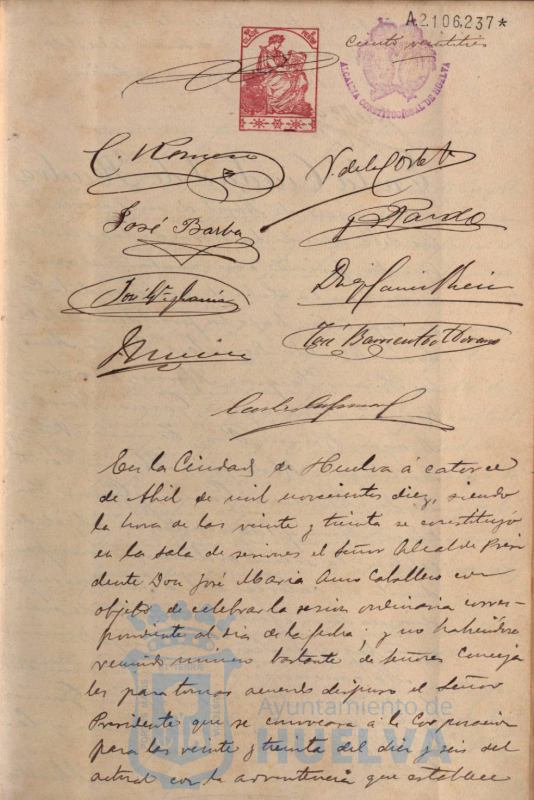 A2106,237*
Ciento veintitrés
ALCALDIA CONSTITUCIONAL DE HUELVA
C. Romero
V. de la Corte
José Barba
y Pardo
José Barrientos
En la Ciudad de Huelva á catorce
de Abril de mil novecientos diez, siendo
la hora de las veinte y treinta se constituyó
en la sala de sesiones el Señor Alcalde Presi
dente Don José Maria Amo Caballero con
objeto de celebrar la sesion ordinaria corres-
pondiente al dia de la fecha; y no habiendose
reunido número bastante de señores Conceja
les para tomar acuerdo dispuso el Señor
Presidente que se convocara á la Corporacion
para las veinte y treinta del diez y seis del
actual con la advertencia que establece
Ayuntamiento de
HUELVA